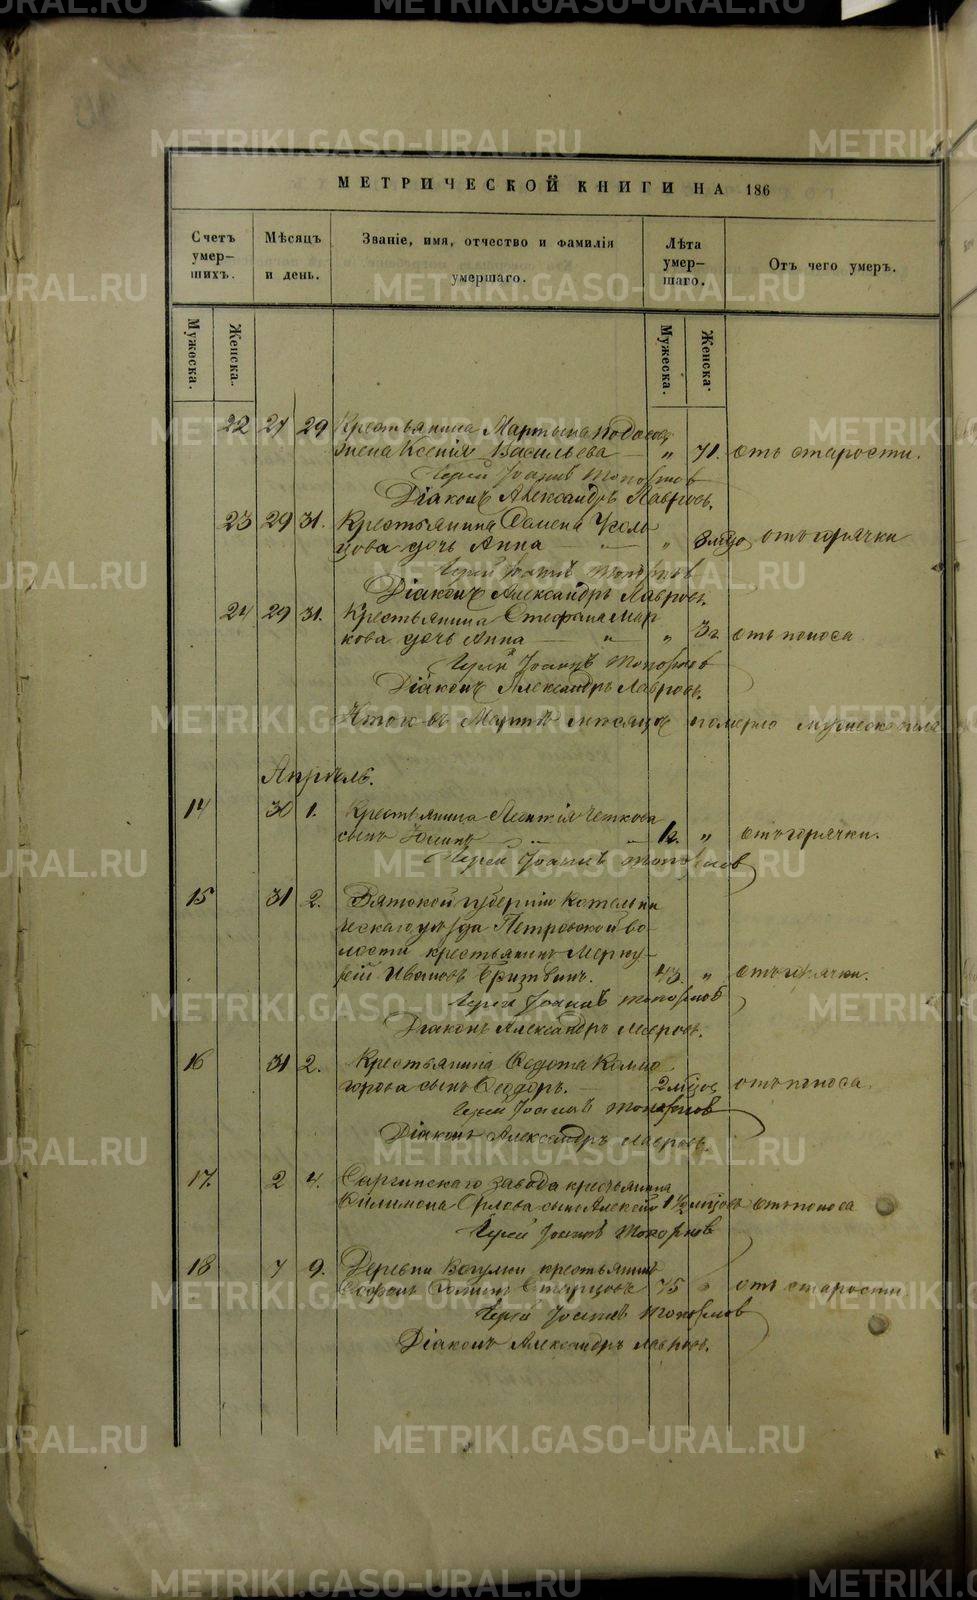 МЕТРИЧЕСКОЙ КНИГИ НА 186
Счетъ умер-шихъ.
Мѣсяцъ и день.
Званіе, имя, отчество и фамилія умершаго.
Лѣта умер-шаго.
Отъ чего умеръ.
Мужеска.
Женска.
Мужеска.
Женска.
22 27 29 Крестьянина Мартына
жена Ксенія Васильева — „ 71. отъ старости.
Іерей Іоаннъ Топорковъ
Діаконъ Александръ Лавровъ.
23 29 31. Крестьянина
дочь Анна — „ — „ отъ горячки
Іерей Іоаннъ Топорковъ
Діаконъ Александръ Лавровъ.
24 29 31. Крестьянина Стефана Мар
кова дочь Анна — „ — „ 3 г. отъ поноса
Іерей Іоаннъ Топорковъ
Діаконъ Александръ Лавровъ.
Итого въ Мартѣ мѣсяцѣ померло мужеска пола
Апрѣль.
14 30 1. Крестьянина Леонтія
сынъ „ „ 1 г. „ отъ горячки.
Іерей Іоаннъ Топорковъ
15 31 2. Вятской губерніи Котельни
ческаго уѣзда Петровской во-
лости крестьянинъ Мерку-
рій Ивановъ 43. „ отъ горячки.
Іерей Іоаннъ Топорковъ
Діаконъ Александръ Лавровъ.
16 31 2. Крестьянина Ѳедота Колмо
горова сынъ Ѳеодоръ. — 2 мѣсяц отъ поноса.
Іерей Іоаннъ Топорковъ
Діаконъ Александръ Лавровъ.
17. 2 4. Саргинскаго завода крестьянина
Филимона Орлова сынъ Алексій 1½ мѣсяцовъ отъ поноса
Іерей Іоаннъ Топорковъ
18 7 9. Деревни крестьянинъ
Старцовъ 75 „ отъ старости.
Іерей Іоаннъ Топорковъ
Діаконъ Александръ Лавровъ.
METRIKI.GASO-URAL.RU